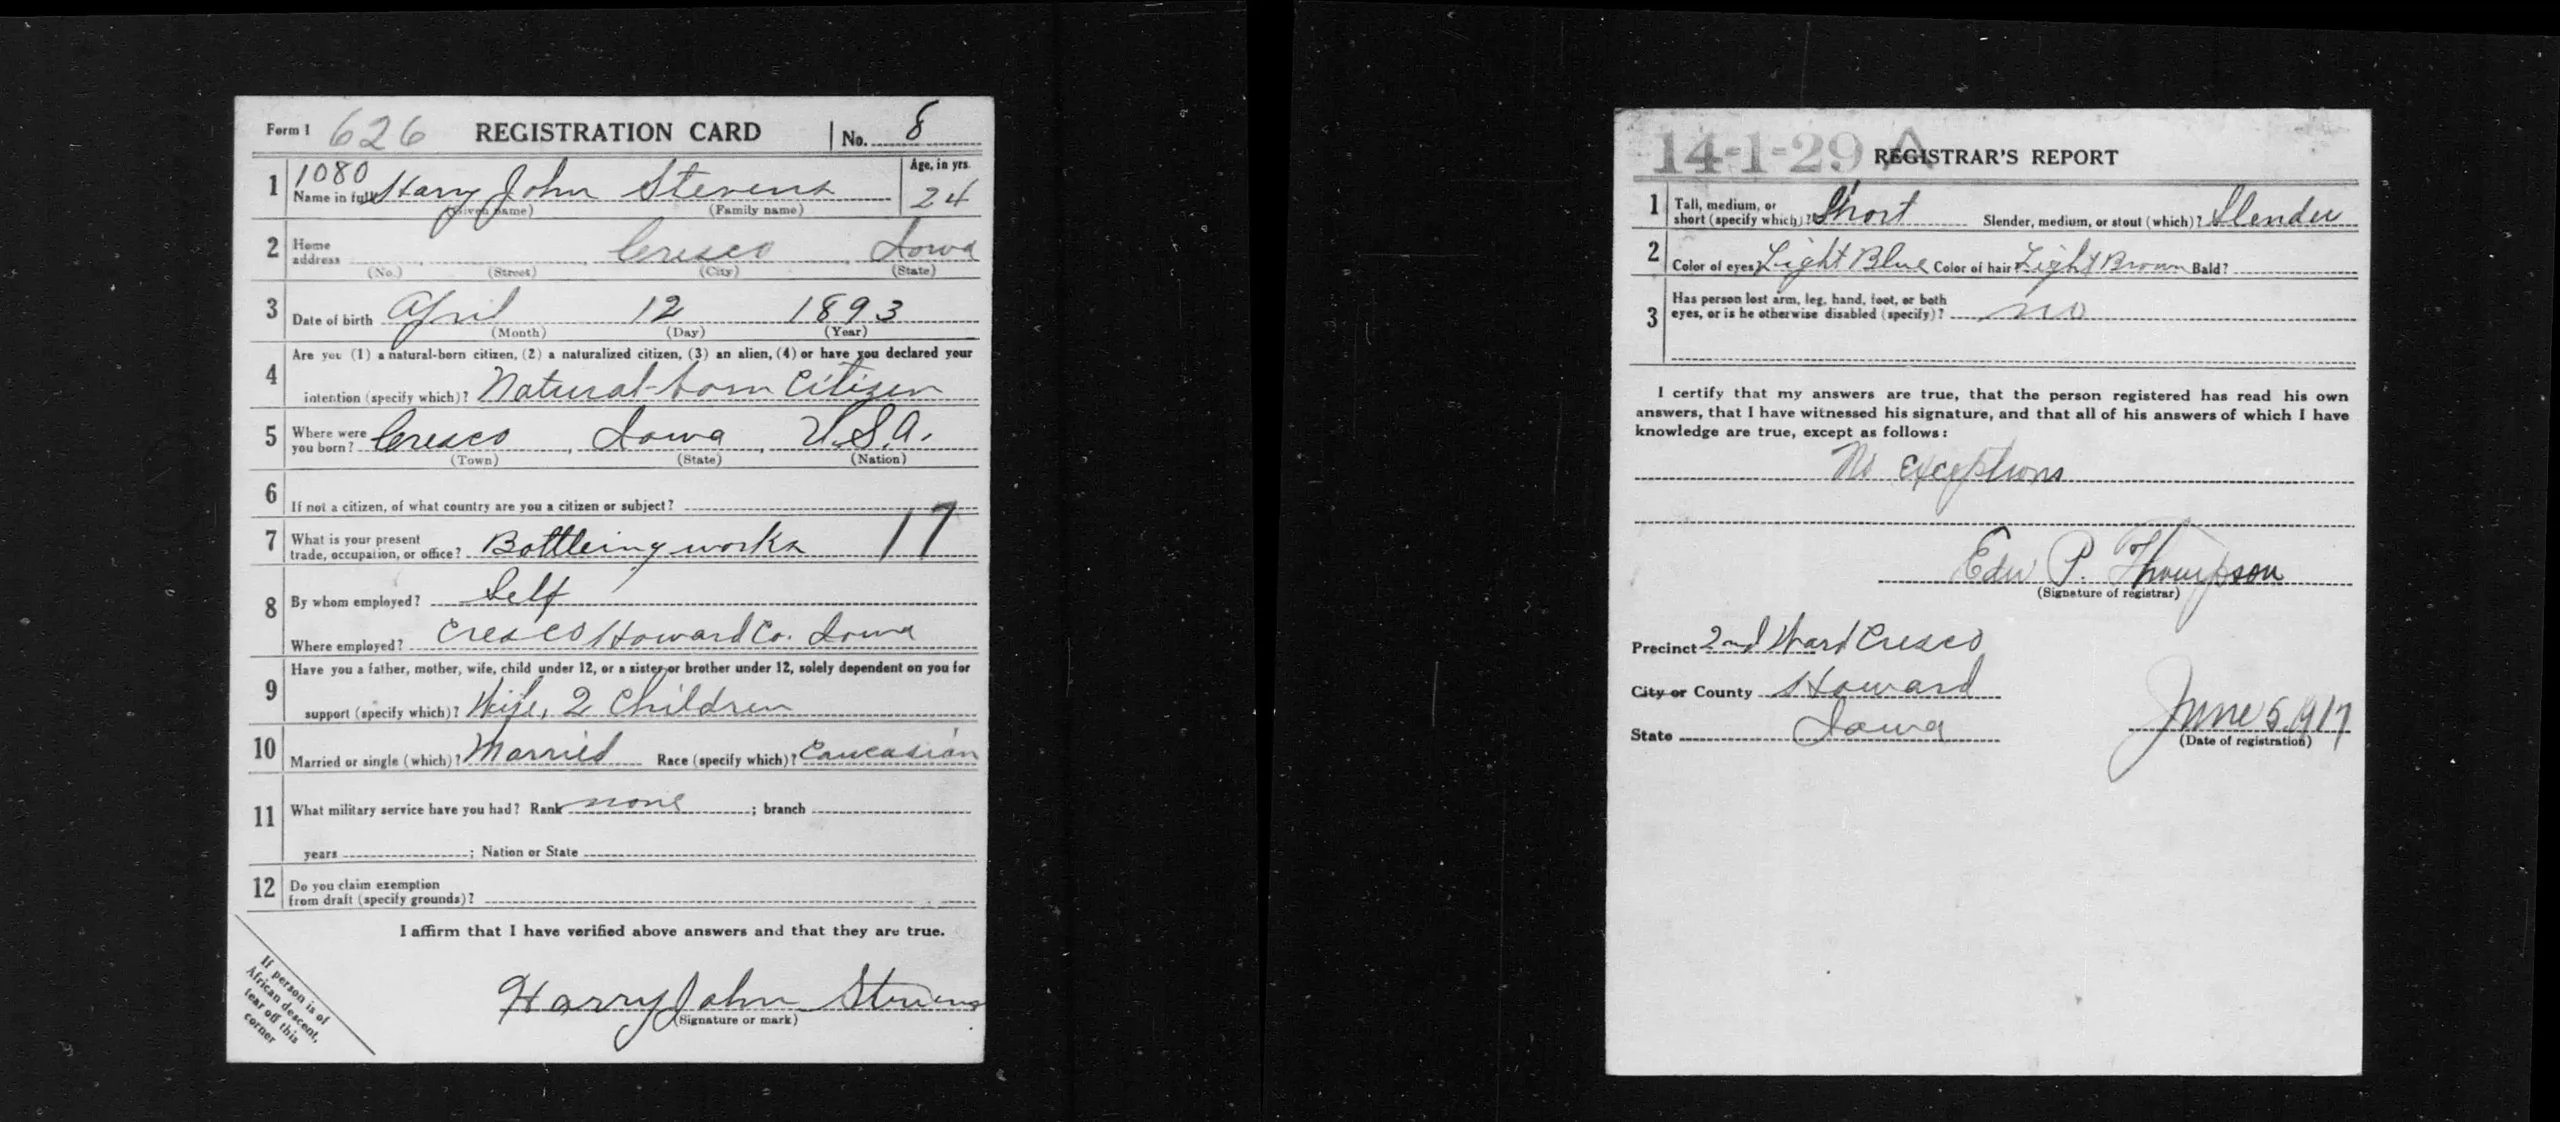 Form 1 626 REGISTRATION CARD No. 8
1 1080 Name in full Harry John Stevens Age, in yrs. 24
(Given name) (Family name)
2 Home address Cresco Iowa
(No.) (Street) (City) (State)
3 Date of birth April 12 1893
(Month) (Day) (Year)
4 Are you (1) a natural-born citizen, (2) a naturalized citizen, (3) an alien, (4) or have you declared your
intention (specify which)? Natural-born Citizen
5 Where were you born? Cresco, Iowa, U.S.A.
(Town) (State) (Nation)
6 If not a citizen, of what country are you a citizen or subject?
7 What is your present trade, occupation, or office? Bottleing works 17
8 By whom employed? Self
Where employed? Cresco Howard Co. Iowa
9 Have you a father, mother, wife, child under 12, or a sister or brother under 12, solely dependent on you for
support (specify which)? Wife, 2 Children
10 Married or single (which)? Married Race (specify which)? Caucasian
11 What military service have you had? Rank none ; branch
years ; Nation or State
12 Do you claim exemption
from draft (specify grounds)?
I affirm that I have verified above answers and that they are true.
Harry John Stevens
(Signature or mark)
If person is of
African descent,
tear off this
corner
14-1-29 A REGISTRAR'S REPORT
1 Tall, medium, or short (specify which)? Short Slender, medium, or stout (which)? Slender
2 Color of eyes? Light Blue Color of hair? Light Brown Bald?
3 Has person lost arm, leg, hand, foot, or both
eyes, or is he otherwise disabled (specify)? no
I certify that my answers are true, that the person registered has read his own
answers, that I have witnessed his signature, and that all of his answers of which I have
knowledge are true, except as follows:
No exceptions
Edw P. Thompson
(Signature of registrar)
Precinct 2nd Ward Cresco
City or County Howard
State Iowa June 5 1917
(Date of registration)